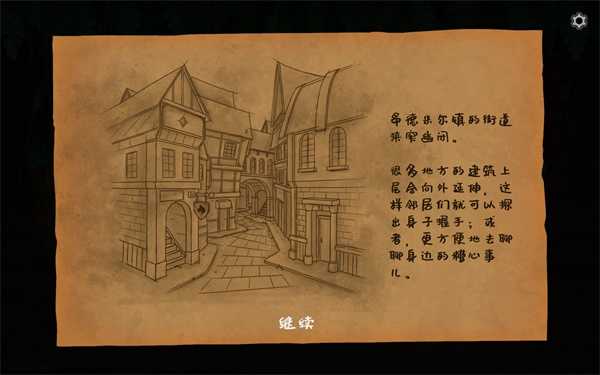 帛德朱尔镇的街道
狭窄幽闭。
很多地方的建筑上
层会向外延伸，这
样邻居们就可以探
出身子握手；或
者，更方便地去聊
聊身边的糟心事
儿。
继续